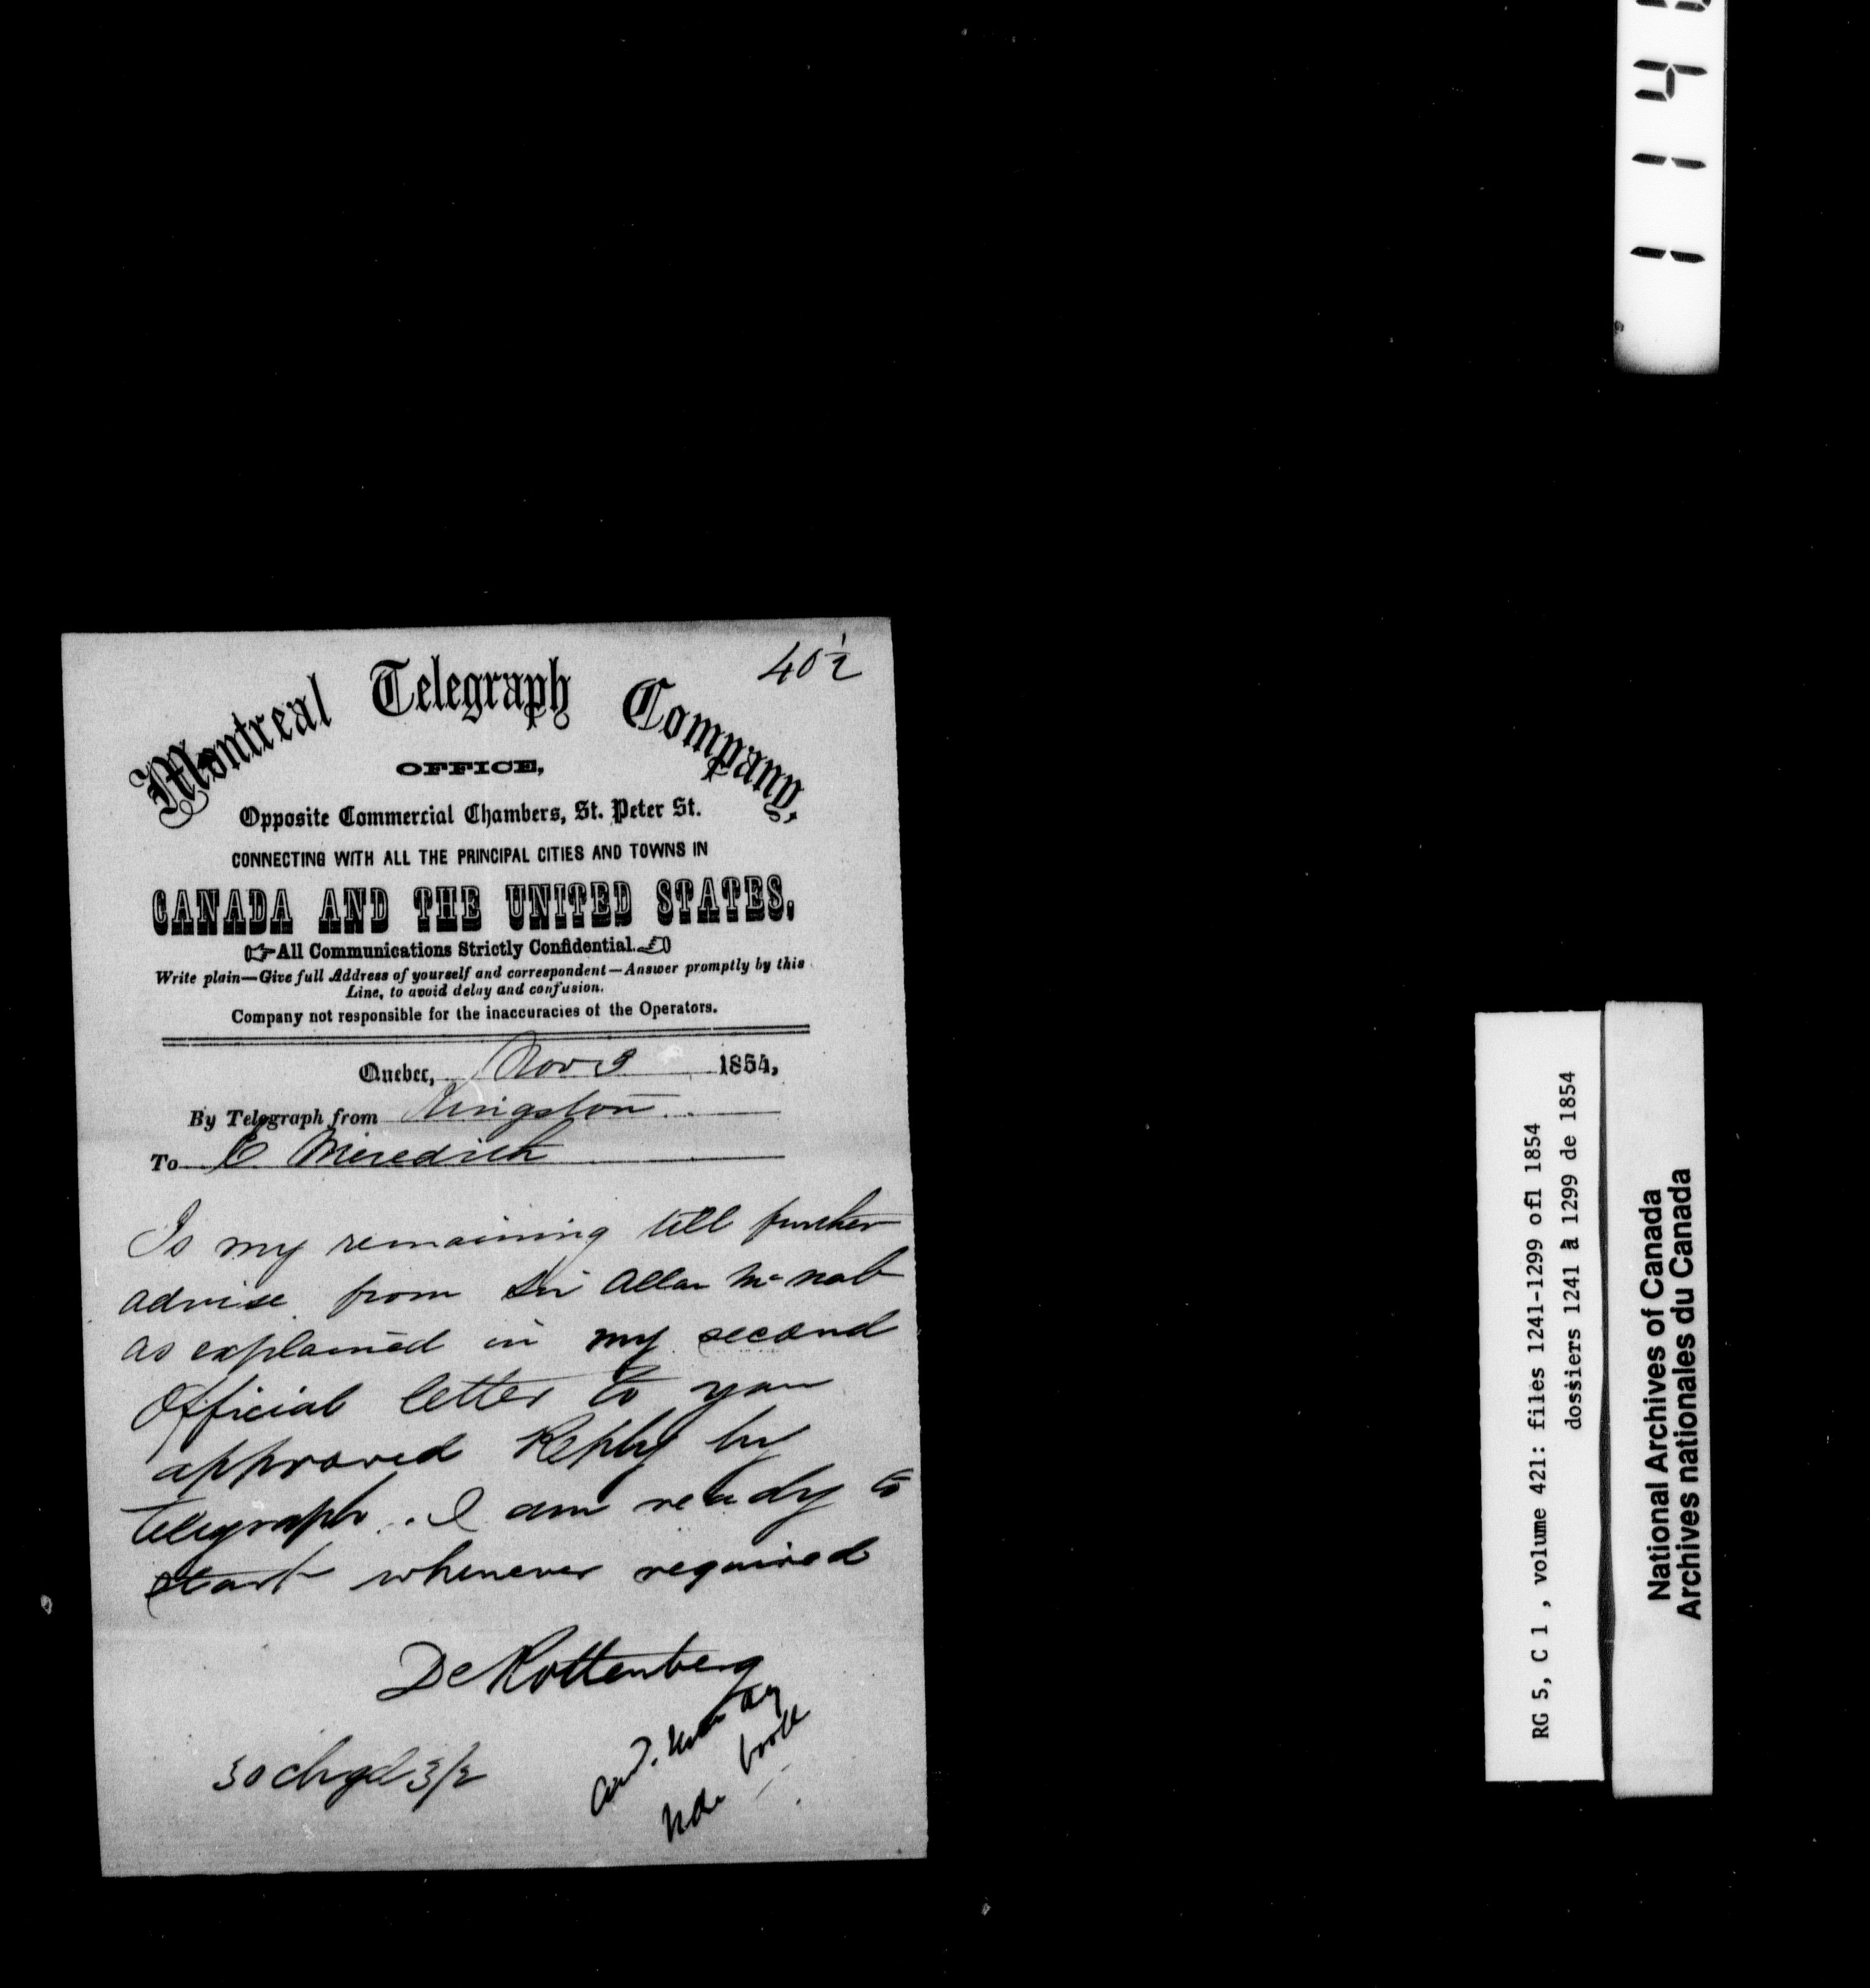 40½
Montreal Telegraph Company,
OFFICE,
Opposite Commercial Chambers, St. Peter St.
CONNECTING WITH ALL THE PRINCIPAL CITIES AND TOWNS IN
CANADA AND THE UNITED STATES.
All Communications Strictly Confidential.
Write plain—Give full Address of yourself and correspondent—Answer promptly by this
Line, to avoid delay and confusion.
Company not responsible for the inaccuracies of the Operators.
Quebec, Nov 9 1854,
By Telegraph from Kingston
To C Meredith
Is my remaining till further
advise from Sir Allan McNab
as explained in my second
Official letter to you
approved Reply by
telegraph. I am ready to
start whenever required
De Rottenberg
30 chgd 3/2
book
RG 5, C 1 , volume 421: files 1241-1299 ofl 1854
dossiers 1241 à 1299 de 1854
National Archives of Canada
Archives nationales du Canada